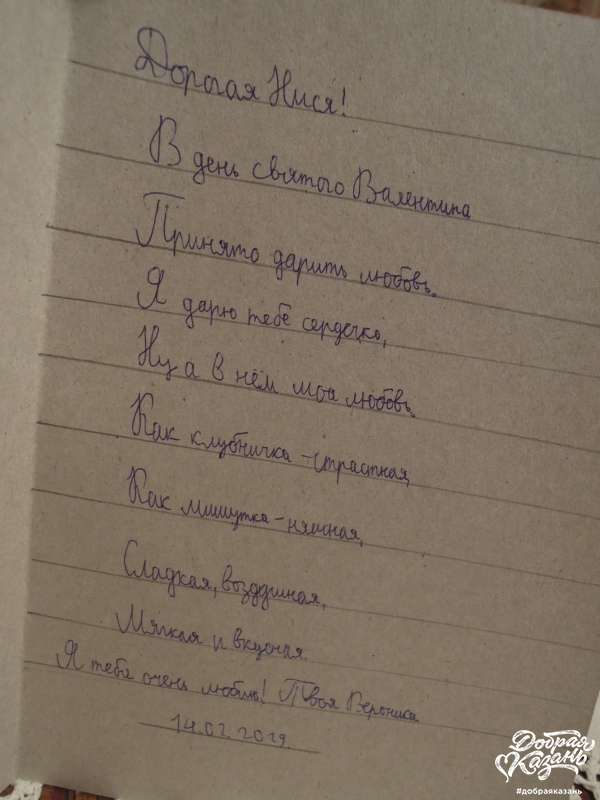 Дорогая Нися!
В день святого Валентина
Принято дарить любовь.
Я дарю тебе сердечко,
Ну а в нём моя любовь.
Как клубничка - страстная,
Как мишутка - няшная,
Сладкая, воздушная,
Мягкая и вкусная.
Я тебя очень люблю! Твоя Вероника
14.02.2019
Добрая Казань
#добраяказань